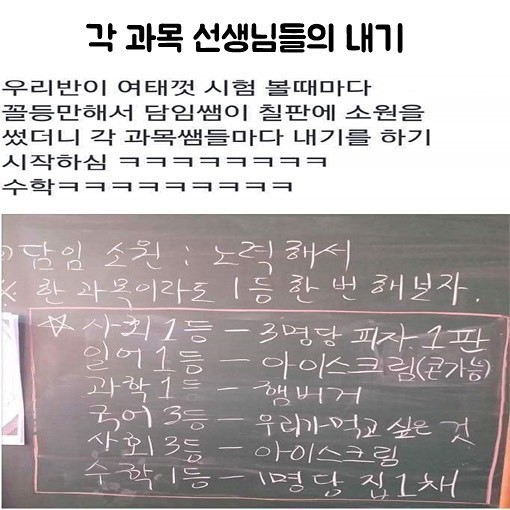 각 과목 선생님들의 내기
우리반이 여태껏 시험 볼때마다
꼴등만해서 담임쌤이 칠판에 소원을
썼더니 각 과목쌤들마다 내기를 하기
시작하심 ㅋㅋㅋㅋㅋㅋㅋㅋ
수학ㅋㅋㅋㅋㅋㅋㅋㅋㅋ
담임 소원 : 노력해서
※ 한 과목이라도 1등 한 번 해보자.
☆ 사회 1등 - 3명당 피자 1판
일어 1등 - 아이스크림(콘가능)
과학 1등 - 햄버거
국어 3등 - 우리가 먹고 싶은 것
사회 3등 - 아이스크림
수학 1등 - 1명당 집 1채